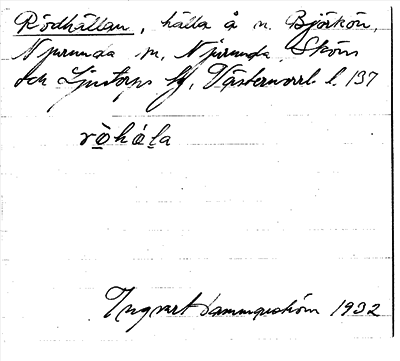 Rödhällan, hälla å n. Björkön,
Njurunda sn, Njurunda, Sköns
och Ljustorps tg, Västernorrl. l. 137
rö̀hála
Ingvart Hammarström 1932